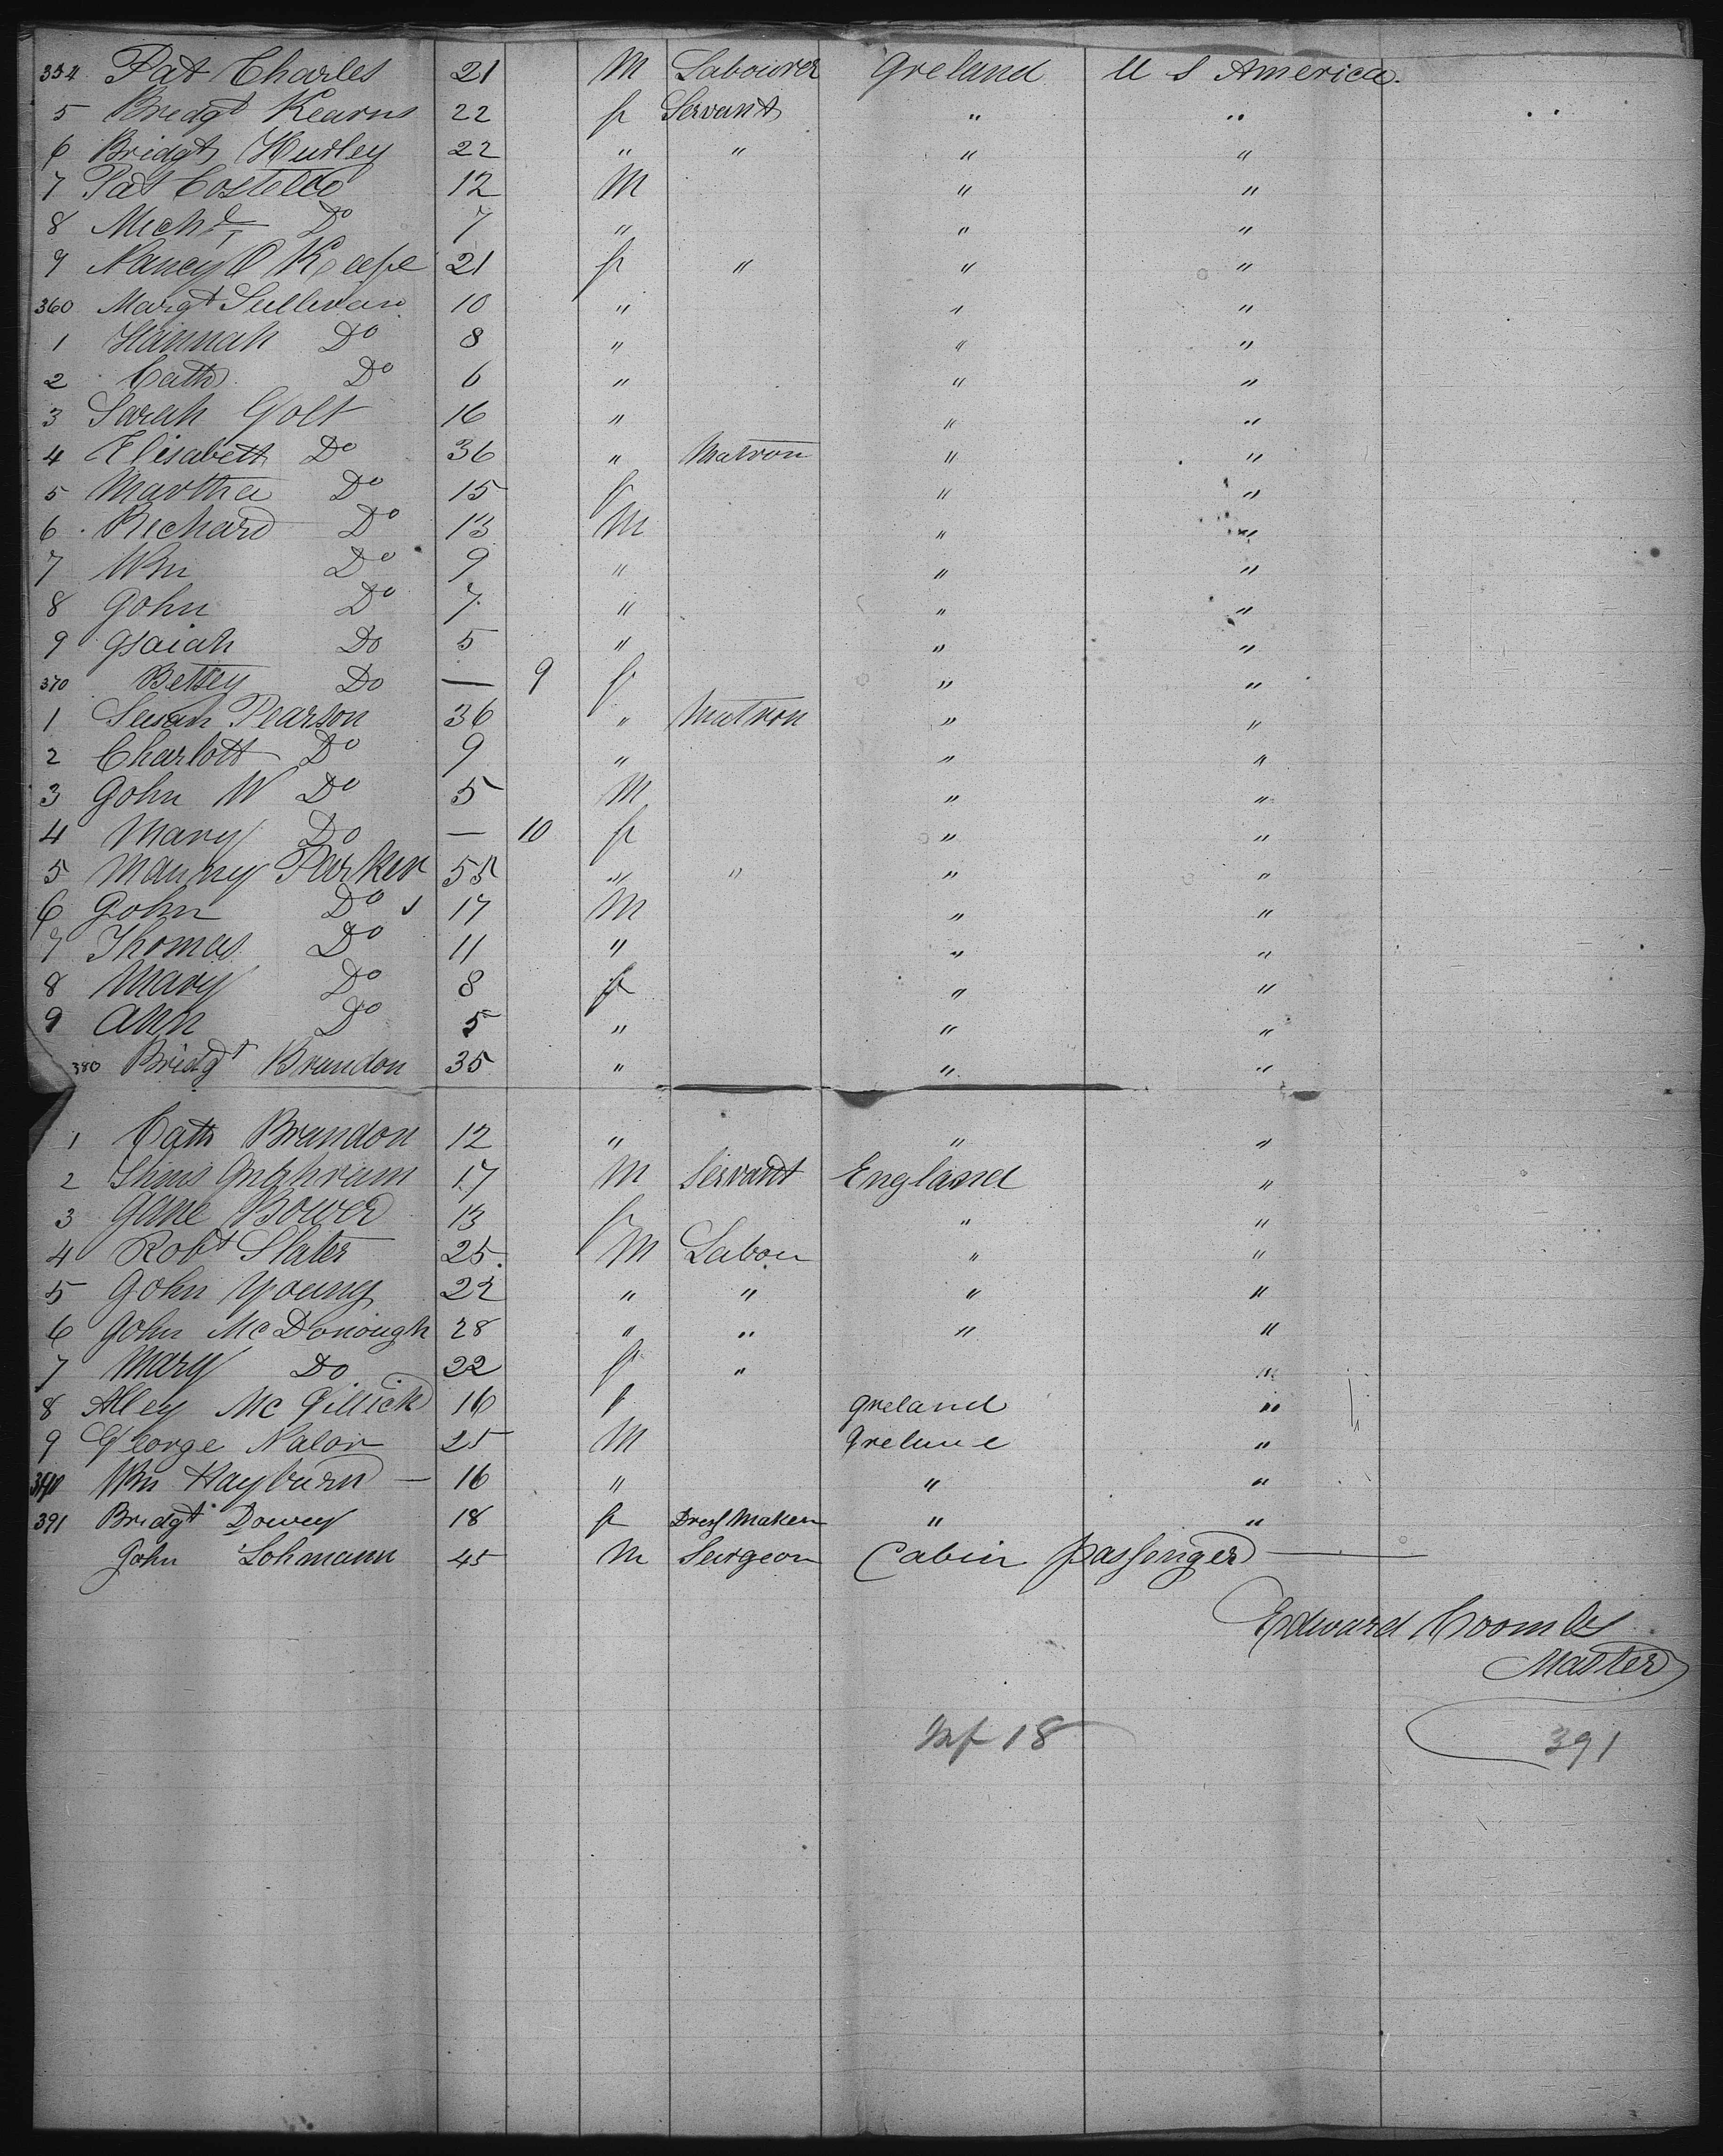 354 Pat Charles 21 M Labourer Ireland U S America
5 Bridgt Kearns 22 f Servant " "
6 Bridgt Hurley 22 " " " "
7 Pat Costello 12 M " "
8 Michl Do 7 " " "
9 Nancy O Keefe 21 f " " "
360 Margt Sullivan 10 " " "
1 Hannah Do 8 " " "
2 Cath Do 6 " " "
3 Sarah Golt 16 " " "
4 Elisabeth Do 36 " Matron " "
5 Martha Do 15 f " "
6 Richard Do 13 M " "
7 Wm Do 9 " " "
8 John Do 7 " " "
9 Isaiah Do 5 " " "
370 Betsey Do — 9 f " "
1 Susan Pearson 36 " Matron " "
2 Charlott Do 9 " " "
3 John W Do 5 M " "
4 Mary Do — 10 f " "
5 Parker 55 " " " "
6 John Do 17 M " "
7 Thomas Do 11 " " "
8 Mary Do 8 f " "
9 Ann Do 5 " " "
380 Bridgt Brandon 35 " " "
1 Cath Brandon 12 " " "
2 17 M Servant England "
3 Jane Bower 13 f " "
4 Robt Slater 25 M Labou " "
5 John Young 22 " " " "
6 John McDonough 28 " " " "
7 Mary Do 22 f " "
8 Alley Mc Gillick 16 f Ireland "
9 George Nalor 25 M Ireland "
390 Wm Rayburn — 16 " " "
391 Bridgt Dowey 18 f Dress Maker " "
John Lohmann 45 M Surgeon Cabin passenger —
Edward Coombs
Master
18 391